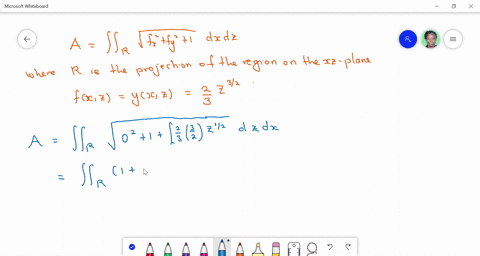 Microsoft Whiteboard
A = ∬_R √(f_x² + f_y² + 1) dx dz
where R is the projection of the region on the xz-plane
f(x,z) = y(x,z) = 2/3 z^{3/2}
A = ∬_R √(0² + 1 + [2/3 (3/2) z^{1/2} dz dx
= ∬_R (1 +